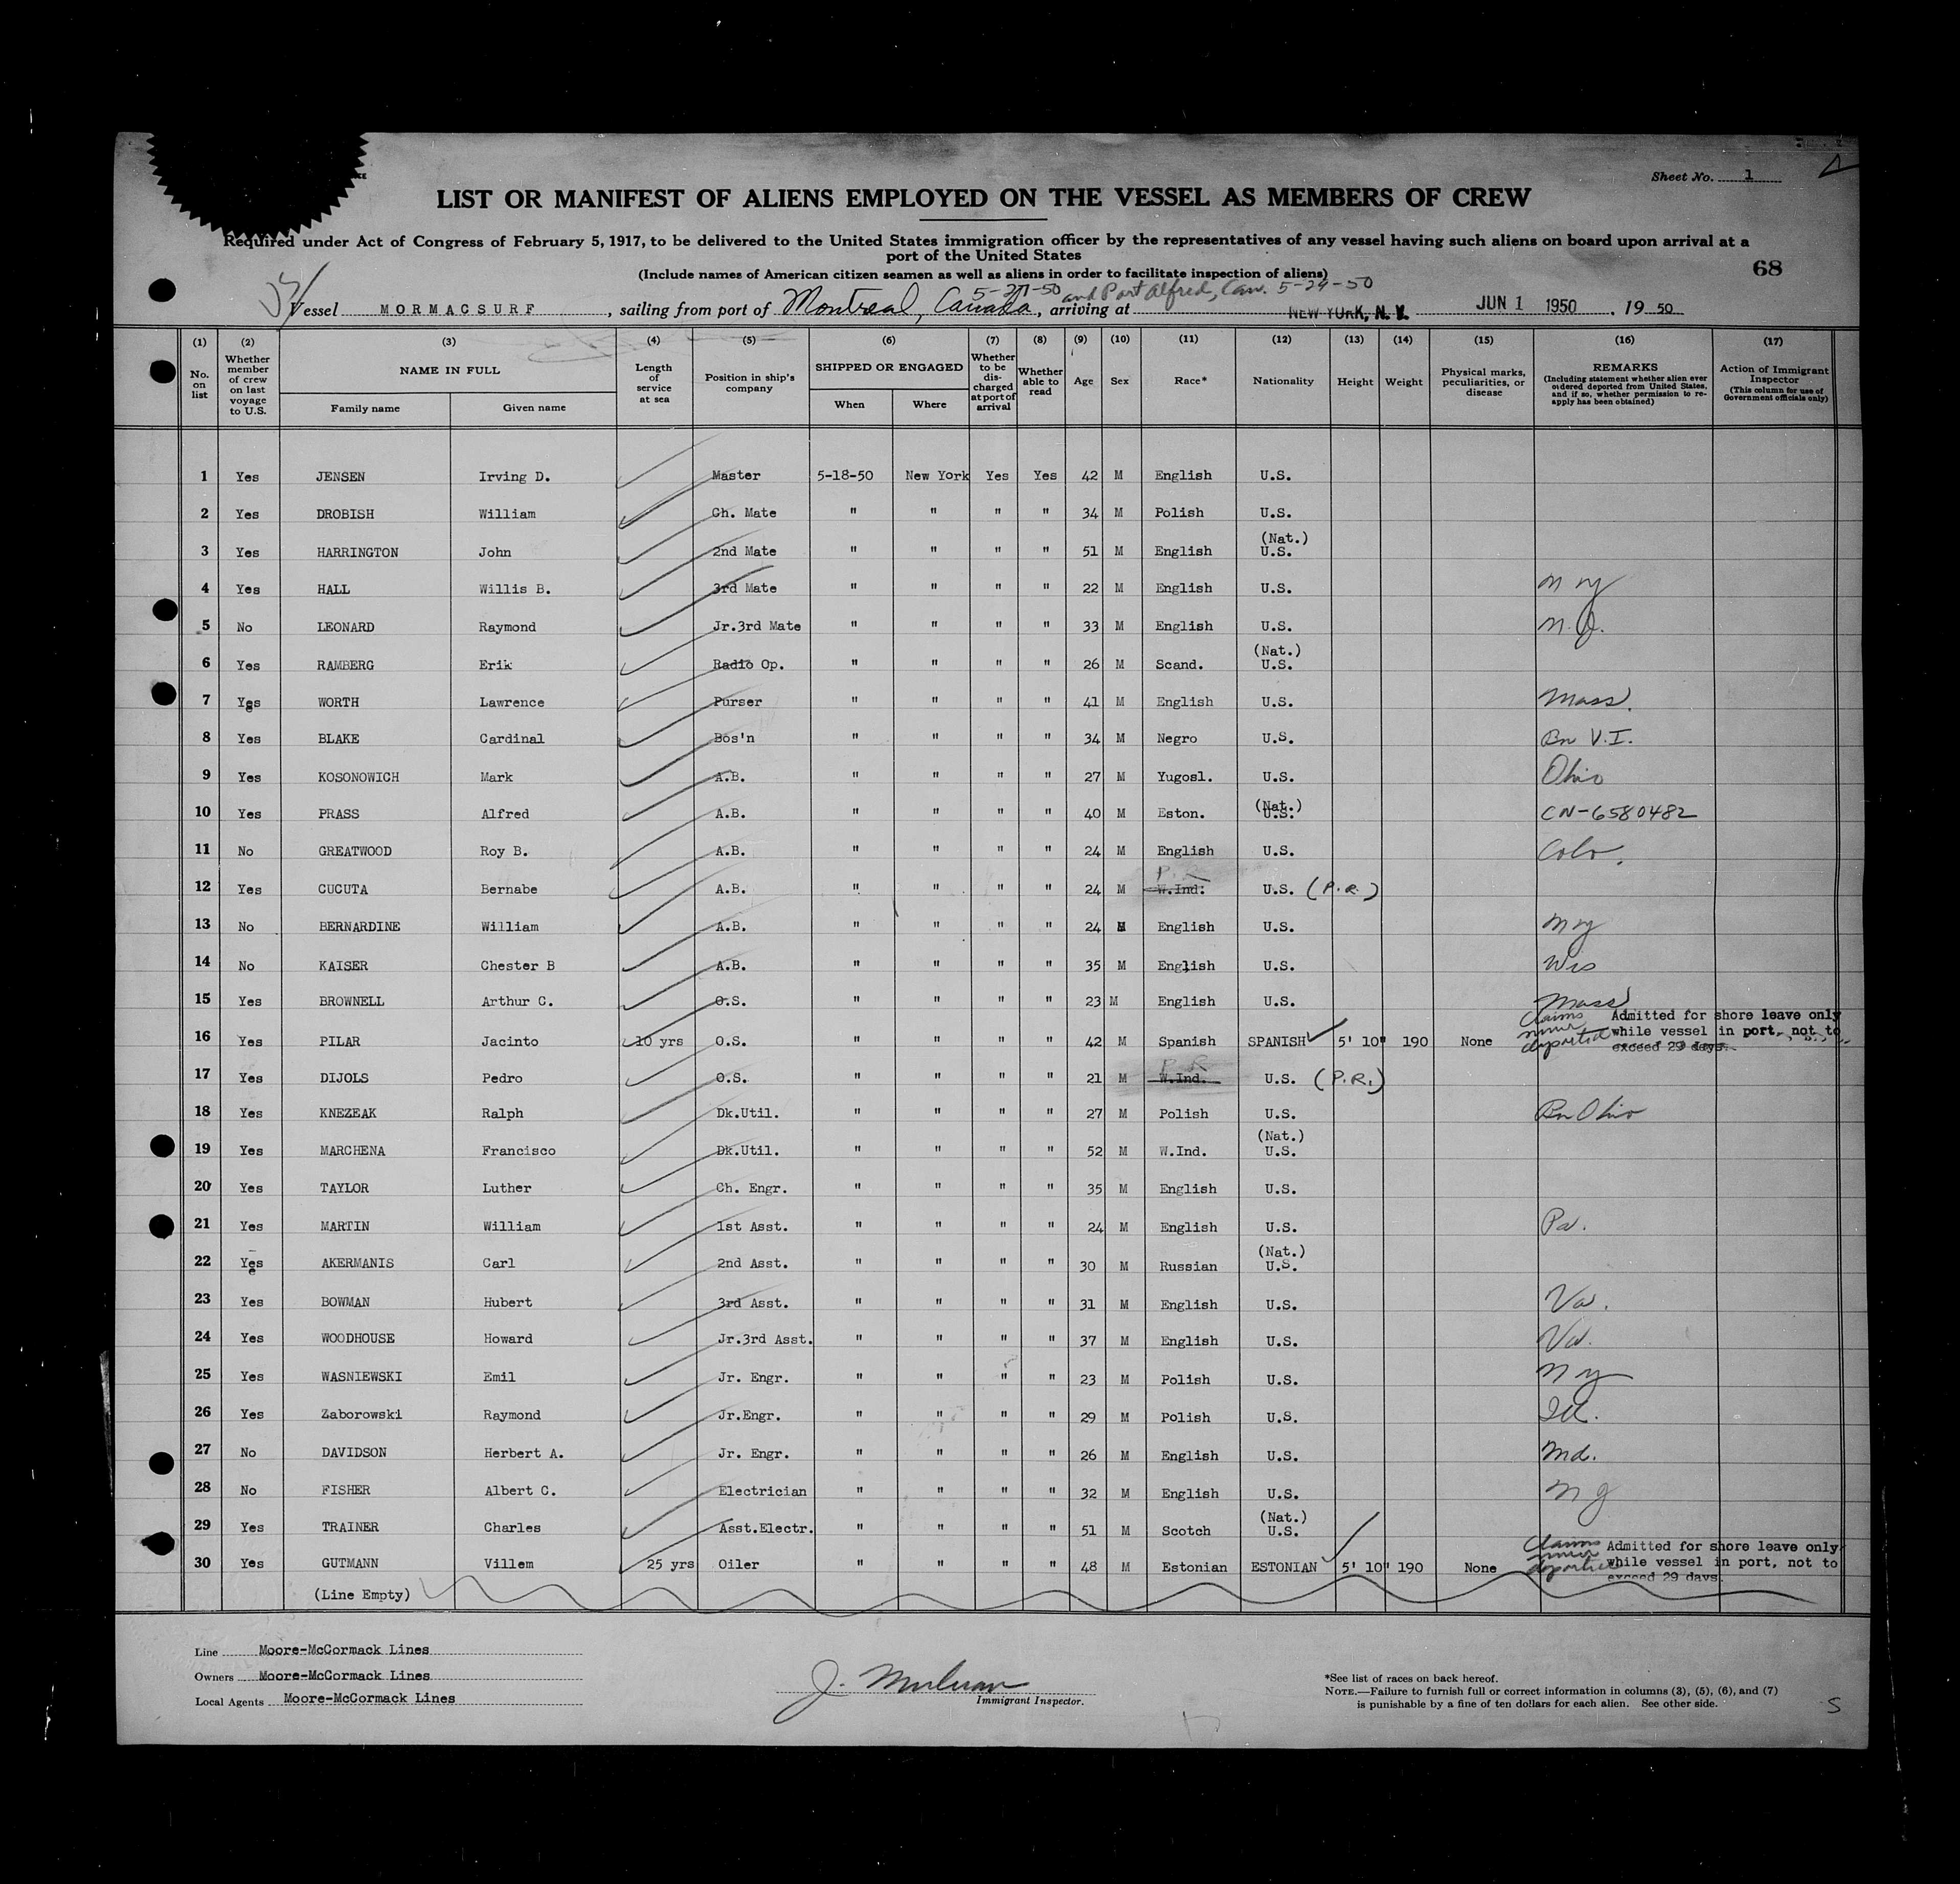 Sheet No. 1
LIST OR MANIFEST OF ALIENS EMPLOYED ON THE VESSEL AS MEMBERS OF CREW
Required under Act of Congress of February 5, 1917, to be delivered to the United States immigration officer by the representatives of any vessel having such aliens on board upon arrival at a
port of the United States
(Include names of American citizen seamen as well as aliens in order to facilitate inspection of aliens)
68
5-27-50 and Port Alfred, Can. 5-24-50
Vessel MORMACSURF, sailing from port of Montreal, Canada, arriving at NEW YORK, N. Y. JUN 1 1950, 19 50
(1) No. on list (2) Whether member of crew on last voyage to U.S. (3) NAME IN FULL Family name Given name (4) Length of service at sea (5) Position in ship's company (6) SHIPPED OR ENGAGED When Where (7) Whether to be discharged at port of arrival (8) Whether able to read (9) Age (10) Sex (11) Race* (12) Nationality (13) Height (14) Weight (15) Physical marks, peculiarities, or disease (16) REMARKS (Including statement whether alien ever ordered deported from United States, and if so, whether permission to re-apply has been obtained) (17) Action of Immigrant Inspector (This column for use of Government officials only)
1 Yes JENSEN Irving D. Master 5-18-50 New York Yes Yes 42 M English U.S.
2 Yes DROBISH William Ch. Mate " " " " 34 M Polish U.S.
3 Yes HARRINGTON John 2nd Mate " " " " 51 M English (Nat.) U.S.
4 Yes HALL Willis B. 3rd Mate " " " " 22 M English U.S. N Y
5 No LEONARD Raymond Jr.3rd Mate " " " " 33 M English U.S. N.J.
6 Yes RAMBERG Erik Radio Op. " " " " 26 M Scand. (Nat.) U.S.
7 Yes WORTH Lawrence Purser " " " " 41 M English U.S. Mass.
8 Yes BLAKE Cardinal Bos'n " " " " 34 M Negro U.S. Bn V.I.
9 Yes KOSONOWICH Mark A.B. " " " " 27 M Yugosl. U.S. Ohio
10 Yes PRASS Alfred A.B. " " " " 40 M Eston. (Nat.) U.S. CN-6580482
11 No GREATWOOD Roy B. A.B. " " " " 24 M English U.S. Colo.
12 Yes CUCUTA Bernabe A.B. " " " " 24 M W.Ind. P.R. U.S. (P.R.)
13 No BERNARDINE William A.B. " " " " 24 M English U.S. N Y
14 No KAISER Chester B A.B. " " " " 35 M English U.S. Wis
15 Yes BROWNELL Arthur C. O.S. " " " " 23 M English U.S. Mass
16 Yes PILAR Jacinto 10 yrs O.S. " " " " 42 M Spanish SPANISH 5' 10" 190 None Claims never deported Admitted for shore leave only while vessel in port, not to exceed 29 days.
17 Yes DIJOLS Pedro O.S. " " " " 21 M W.Ind. P R U.S. (P.R.)
18 Yes KNEZEAK Ralph Dk.Util. " " " " 27 M Polish U.S. Bn Ohio
19 Yes MARCHENA Francisco Dk.Util. " " " " 52 M W.Ind. (Nat.) U.S.
20 Yes TAYLOR Luther Ch. Engr. " " " " 35 M English U.S.
21 Yes MARTIN William 1st Asst. " " " " 24 M English U.S. Pa.
22 Yes AKERMANIS Carl 2nd Asst. " " " " 30 M Russian (Nat.) U.S.
23 Yes BOWMAN Hubert 3rd Asst. " " " " 31 M English U.S. Va.
24 Yes WOODHOUSE Howard Jr.3rd Asst. " " " " 37 M English U.S. Va.
25 Yes WASNIEWSKI Emil Jr. Engr. " " " " 23 M Polish U.S. N Y
26 Yes Zaborowski Raymond Jr.Engr. " " " " 29 M Polish U.S. Ill.
27 No DAVIDSON Herbert A. Jr. Engr. " " " " 26 M English U.S. Md.
28 No FISHER Albert C. Electrician " " " " 32 M English U.S. N J
29 Yes TRAINER Charles Asst.Electr. " " " " 51 M Scotch (Nat.) U.S.
30 Yes GUTMANN Villem 25 yrs Oiler " " " " 48 M Estonian ESTONIAN 5' 10" 190 None Claims never deported Admitted for shore leave only while vessel in port, not to exceed 29 days.
(Line Empty)
Line Moore-McCormack Lines
Owners Moore-McCormack Lines
Local Agents Moore-McCormack Lines
Immigrant Inspector.
*See list of races on back hereof.
NOTE.—Failure to furnish full or correct information in columns (3), (5), (6), and (7)
is punishable by a fine of ten dollars for each alien. See other side.
S